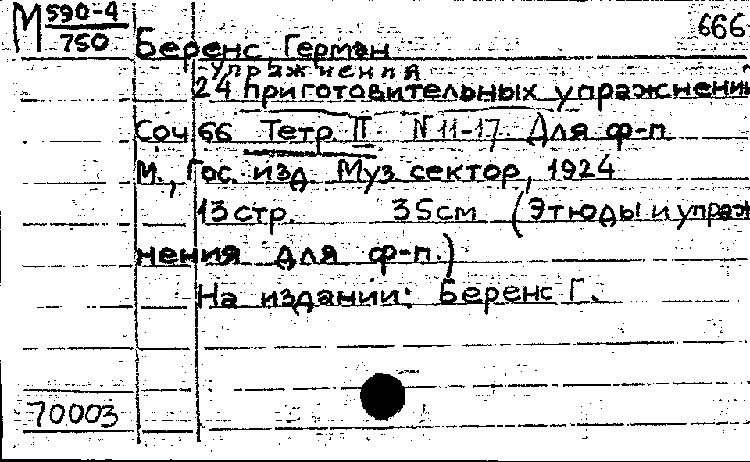 М 590-4
750
666
Беренс Герман
Упражнения
24 приготовительных упражнений
Соч 66 Тетр II N 11-17. Для ф-п
М., Гос. изд. Муз сектор, 1924
13 стр. 35 см (Этюды и упраж
нения для ф-п.)
На издании: Беренс Г.
70003